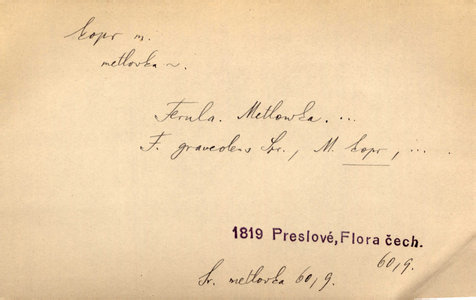 kopr m.
metlovka ~.
Ferula. Metlowka. ...
F. graveolens Spr., M. kopr, ... .
1819 Preslové, Flora čech.
60, 9.
Sr. metlovka 60, 9.